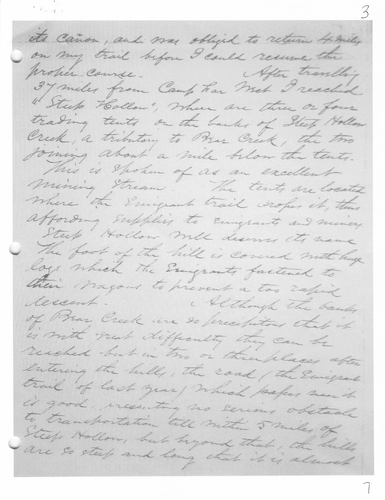 3
its cañon, and was obliged to return 4 miles
on my trail before I could resume the
proper course. After travelling
37 miles from Camp Far West I reached
"Steep Hollow", where are three or four
trading tents on the banks of Steep Hollow
Creek, a tributary to Bear Creek, the two
joining about a mile below the tents.
This is spoken of as an excellent
mining stream. The tents are located
where the Emigrant trail crosses it, thus
affording supplies to emigrants and miners.
Steep Hollow well deserves its name
The foot of the hill is covered with huge
logs which the Emigrants fastened to
their wagons to prevent a too rapid
descent. Although the banks
of Bear Creek are so precipitous that it
is with great difficulty they can be
reached but in two or three places after
entering the hills, the road (the Emigrant
trail of last year) which passes near it
is good, presenting no serious obstacle
to transportation till within 5 miles of
Steep Hollow, but beyond that, the hills
are so steep and long that it is almost
7